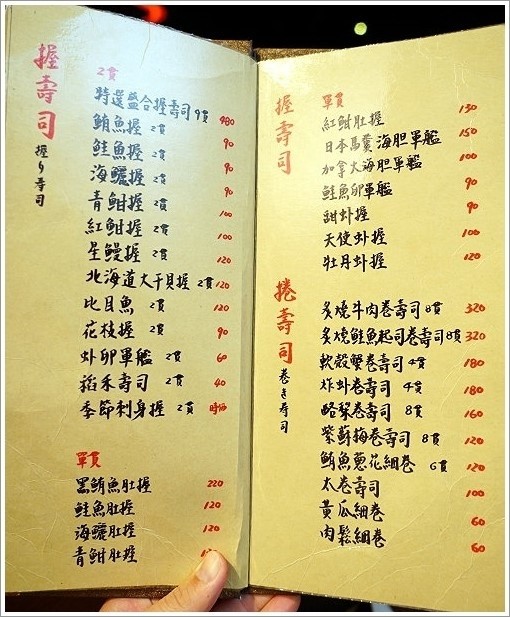 握壽司
握り寿司
2貫
特選盤合握壽司 9貫 980
鮪魚握 2貫 90
鮭魚握 2貫 90
海鱺握 2貫 90
青魽握 2貫 100
紅魽握 2貫 100
星鰻握 2貫 120
北海道大干貝握 2貫 120
比目魚 2貫 120
花枝握 2貫 90
虾卵軍艦 2貫 60
稻禾壽司 2貫 40
季節刺身握 2貫 時価
單貫
黑鮪魚肚握 220
鮭魚肚握 120
海鱺肚握 120
青魽肚握
握壽司
單貫
紅魽肚握 130
日本馬糞海胆軍艦 150
加拿大海胆軍艦 100
鮭魚卵軍艦 90
甜虾握 90
天使虾握 100
牡丹虾握 120
捲壽司
巻き寿司
炙燒牛肉卷壽司 8貫 320
炙燒鮭魚起司卷壽司 8貫 320
軟殼蟹卷壽司 4貫 180
炸虾卷壽司 4貫 180
酪梨卷壽司 8貫 160
紫蘇梅卷壽司 8貫 120
鮪魚蔥花細卷 6貫 120
太卷壽司 100
黃瓜細卷 60
肉鬆細卷 60